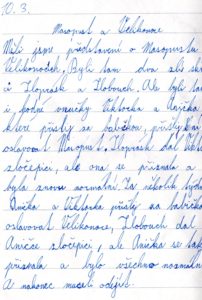 10. 3.
Masopust a Velikonoce
Měli jsme představení o Masopustu
Velikonocích. Byli tam dva zlí skř
i Sloprask a Zlobouch. Ale byli ta
i hodní vnučky Viktorka a Anička
které přišly za babičkou, přišly k ní
oslavovat Masopust. dal Vikto
zločepici, ale ona se přiznala a
byla znova normální. Za několik týdn
Anička a Viktorka přišly za babičko
oslavovat Velikonoce, Zlobouch dal
Aničce zločepici, ale Anička se tak
přiznala a bylo všechno normáln
A nakonec museli odejít.